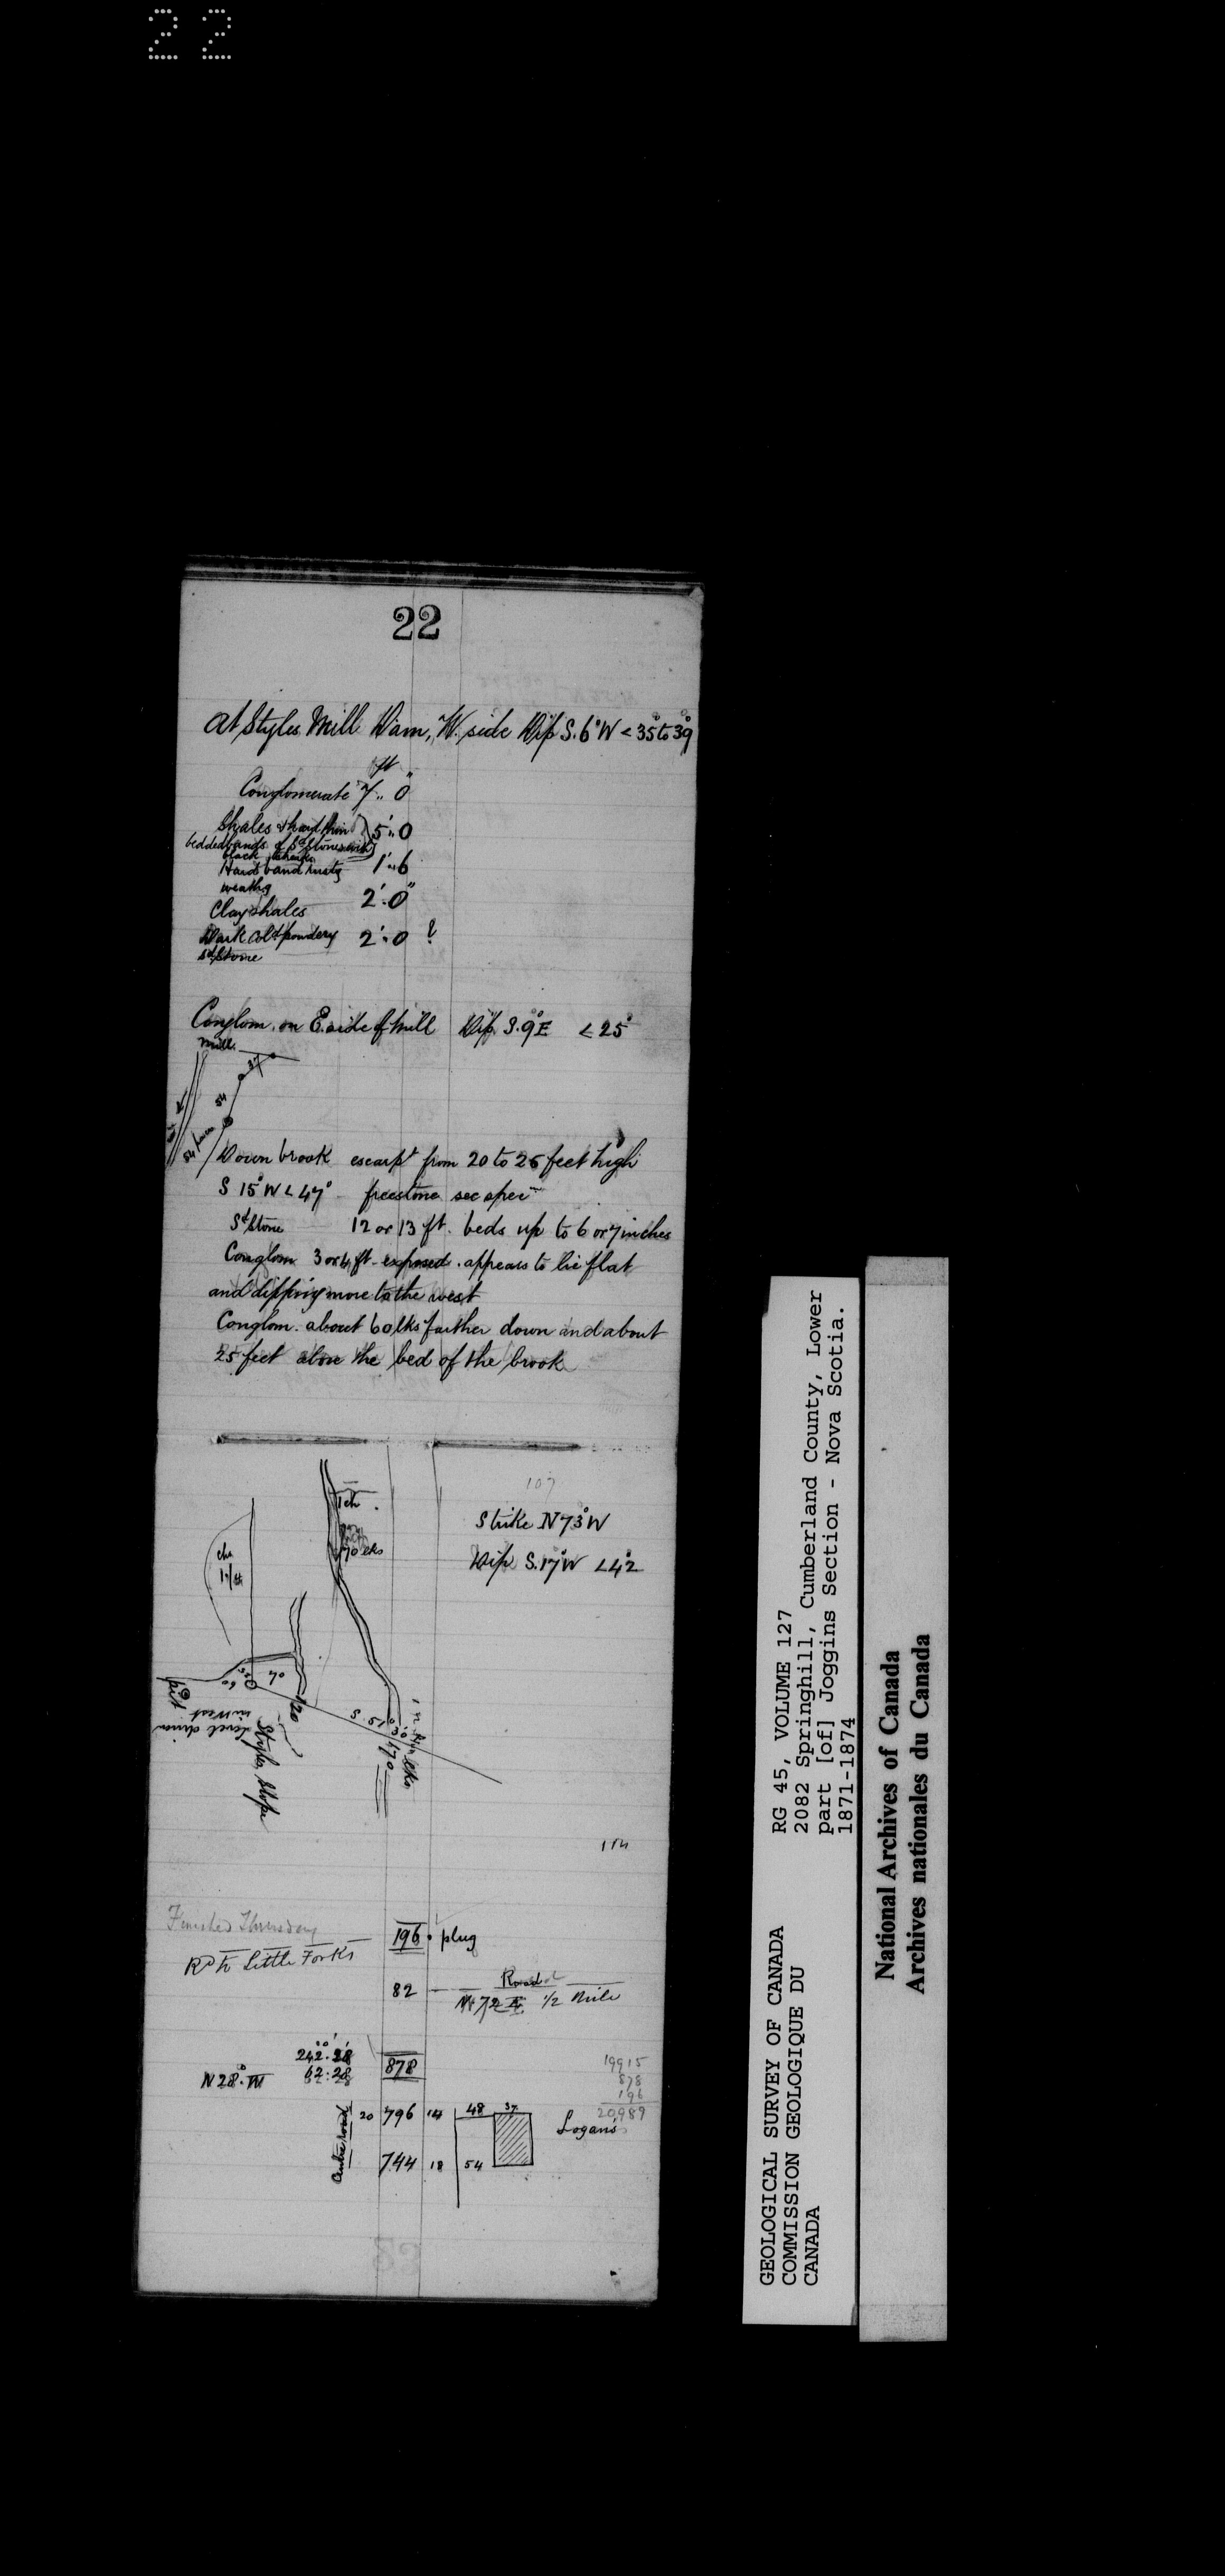 22
22
At Styles Mill Dam, W. side Dip S. 6° W < 35° to 39°
ft "
Conglomerate 7 " 0
Shales & hard thin
bedded bands of Sd Stones with
black 5' " 0
Hard band rusty 1' " 6
weathg
Clay shales 2' " 0"
Dark Cold powdery 2' " 0 ?
sdStone
Conglom. on E side of Mill Dip S. 9° E < 25°
Mill.
37
54
Down brook escarpt from 20 to 25 feet high
S 15° W < 47° freestone see spec
Sd Stone 12 or 13 ft. beds up to 6 or 7 inches
Conglom 3 or 4 ft exposed. appears to lie flat
and dipping more to the west
Conglom. about 60 lks farther down and about
25 feet above the bed of the brook
107
1 ch.
Strike N 73° W
70 lks
Dip S. 17° W < 42°
70
60
120
S. 51° 30'
170
lks
pit
level driven
in West
Styles Slope
114
Finished Thursday
Rd to Little Forks
196 • plug
82 Road
N 72 E 1/2 Mile
242° . 28'
62 : 28
N 28° . W
878
19915
878
196
20989
Centre road
20 796 14 48 37
Logan's
744 18 54
GEOLOGICAL SURVEY OF CANADA
COMMISSION GEOLOGIQUE DU
CANADA
RG 45, VOLUME 127
2082 Springhill, Cumberland County, Lower
part [of] Joggins Section - Nova Scotia.
1871-1874
National Archives of Canada
Archives nationales du Canada